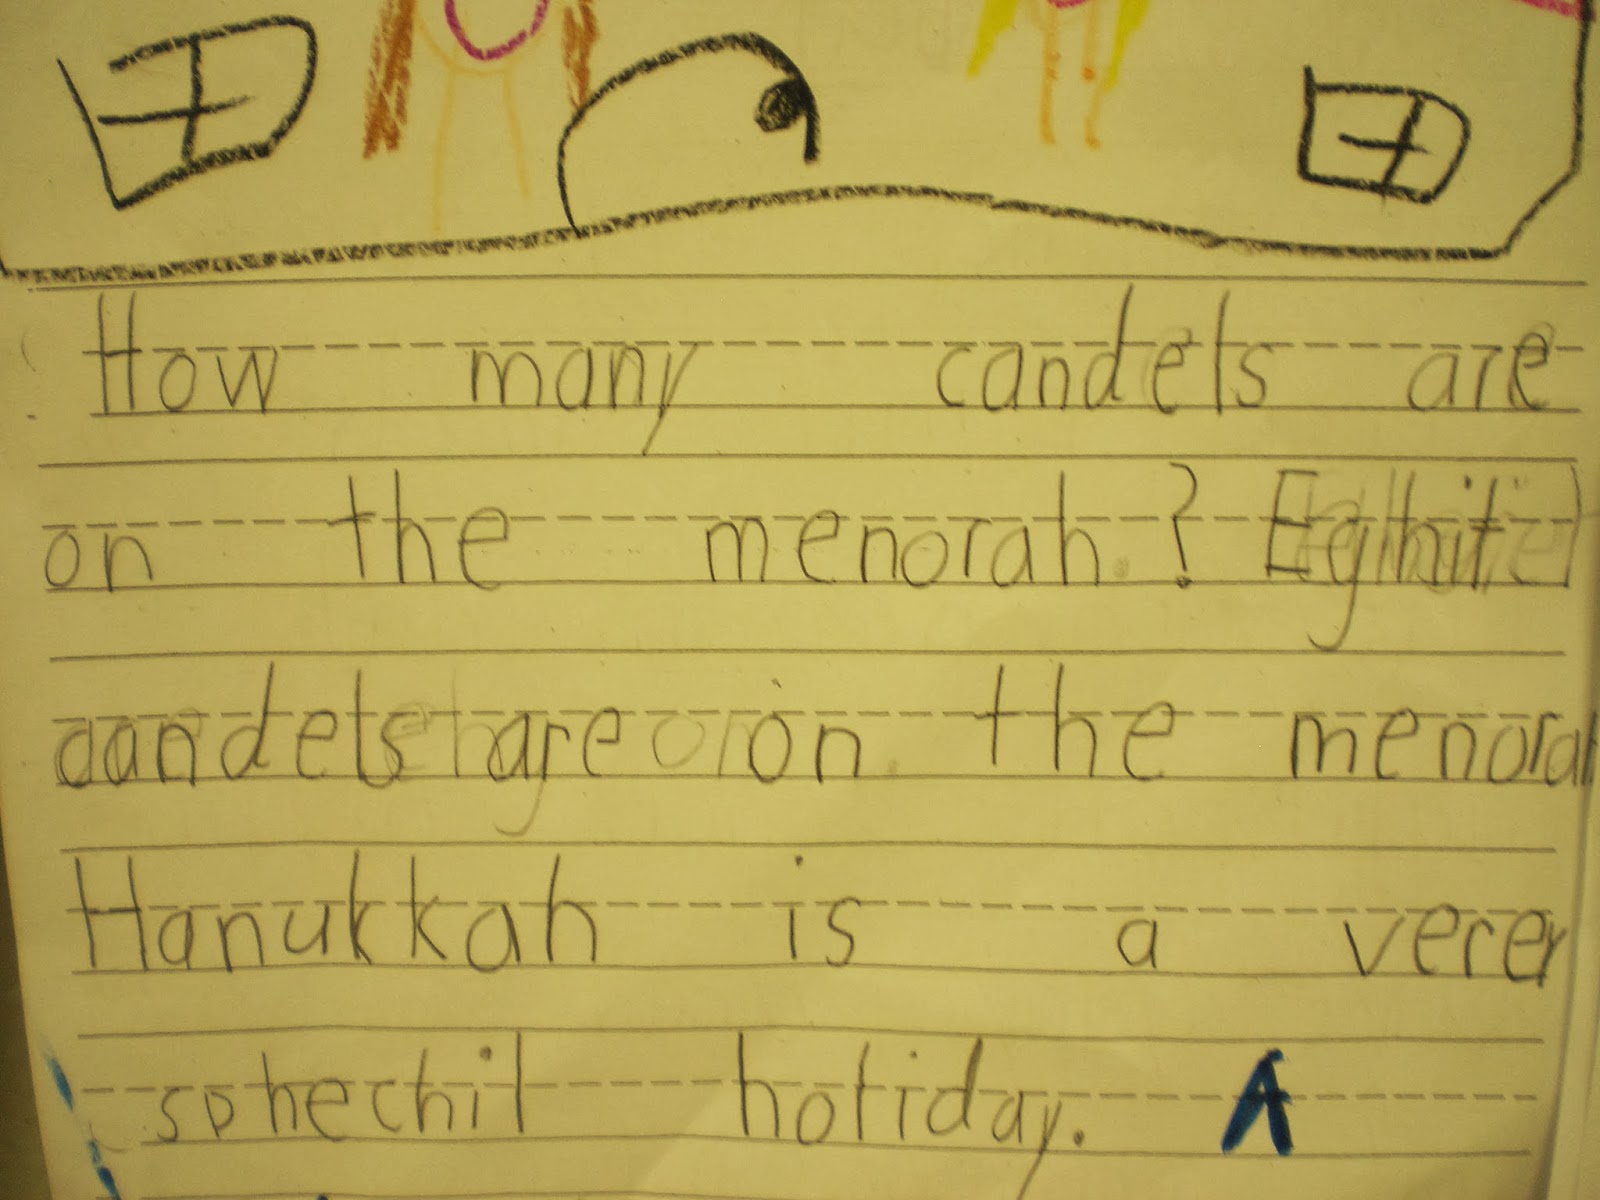 How many candels are
on the menorah? Eghit
candels are on the menorah
Hanukkah is a verey
sphechil holiday. A